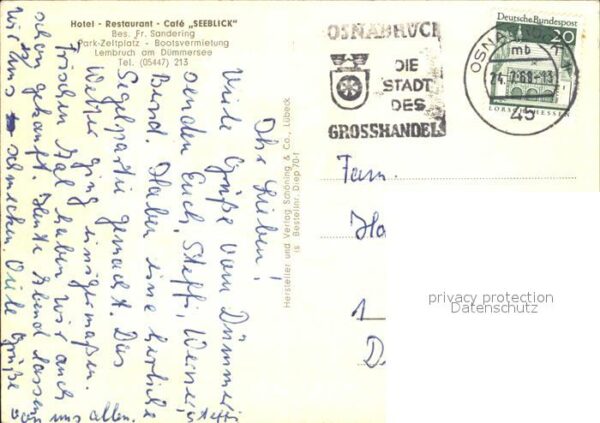 Hotel - Restaurant - Café „SEEBLICK"
Bes. Fr. Sandering
Park-Zeltplatz - Bootsvermietung
Lembruch am Dümmersee
Tel. (05447) 213
Ihr Lieben!
Viele Grüße vom Dümmer
senden Euch, Steffi, Werner,
Bernd. Haben eine herrliche
Segelpartie gemacht. Das
Wetter ging einigermaßen.
Frischen Aal haben wir auch
schon gekauft. Heute Abend lassen
wir uns schmecken. Viele Grüße
uns allen.
Steffi
Hersteller und Verlag Schöning & Co., Lübeck
Is Bestellnr. Diep 70-1
OSNABRÜCK
DIE
STADT
DES
GROSSHANDELS
Deutsche Bundespost
20
LORSCH/HESSEN
OSNABRÜCK
mb
45
Fam.
Ha
1
D
privacy protection
Datenschutz